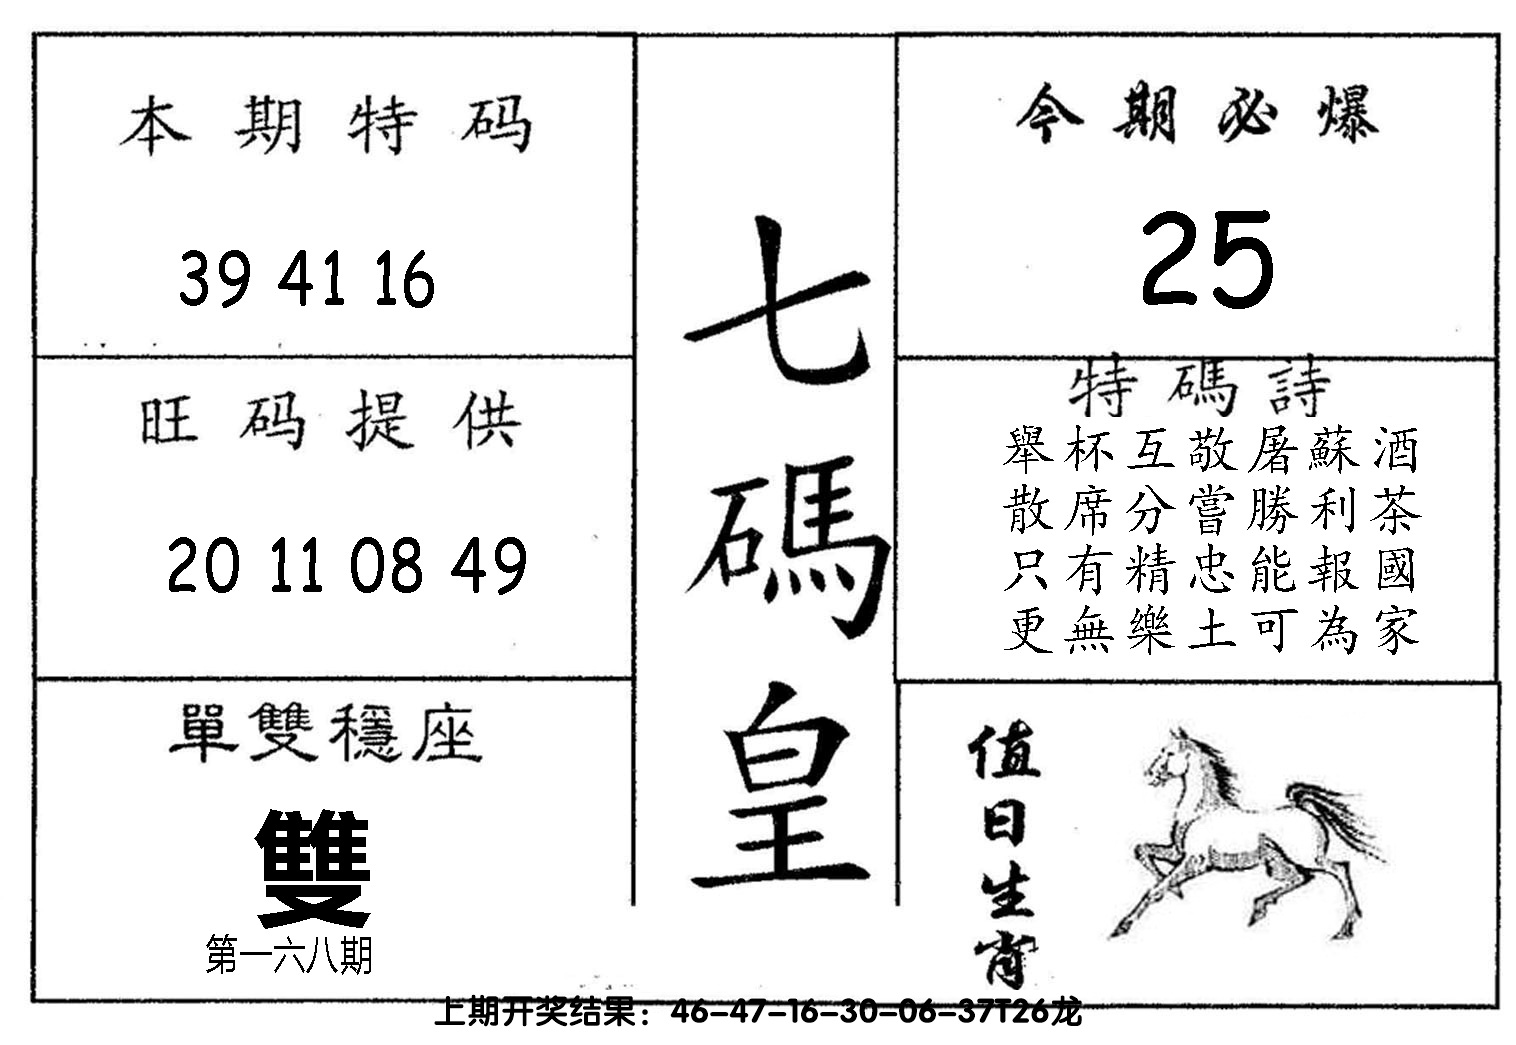 本期特码
39 41 16
旺码提供
20 11 08 49
單雙穩座
雙
第一六八期
七碼皇
今期必爆
25
特碼詩
舉杯互敬屠蘇酒
散席分嘗勝利茶
只有精忠能報國
更無樂土可為家
值日生肖
上期开奖结果：46-47-16-30-06-37T26龙